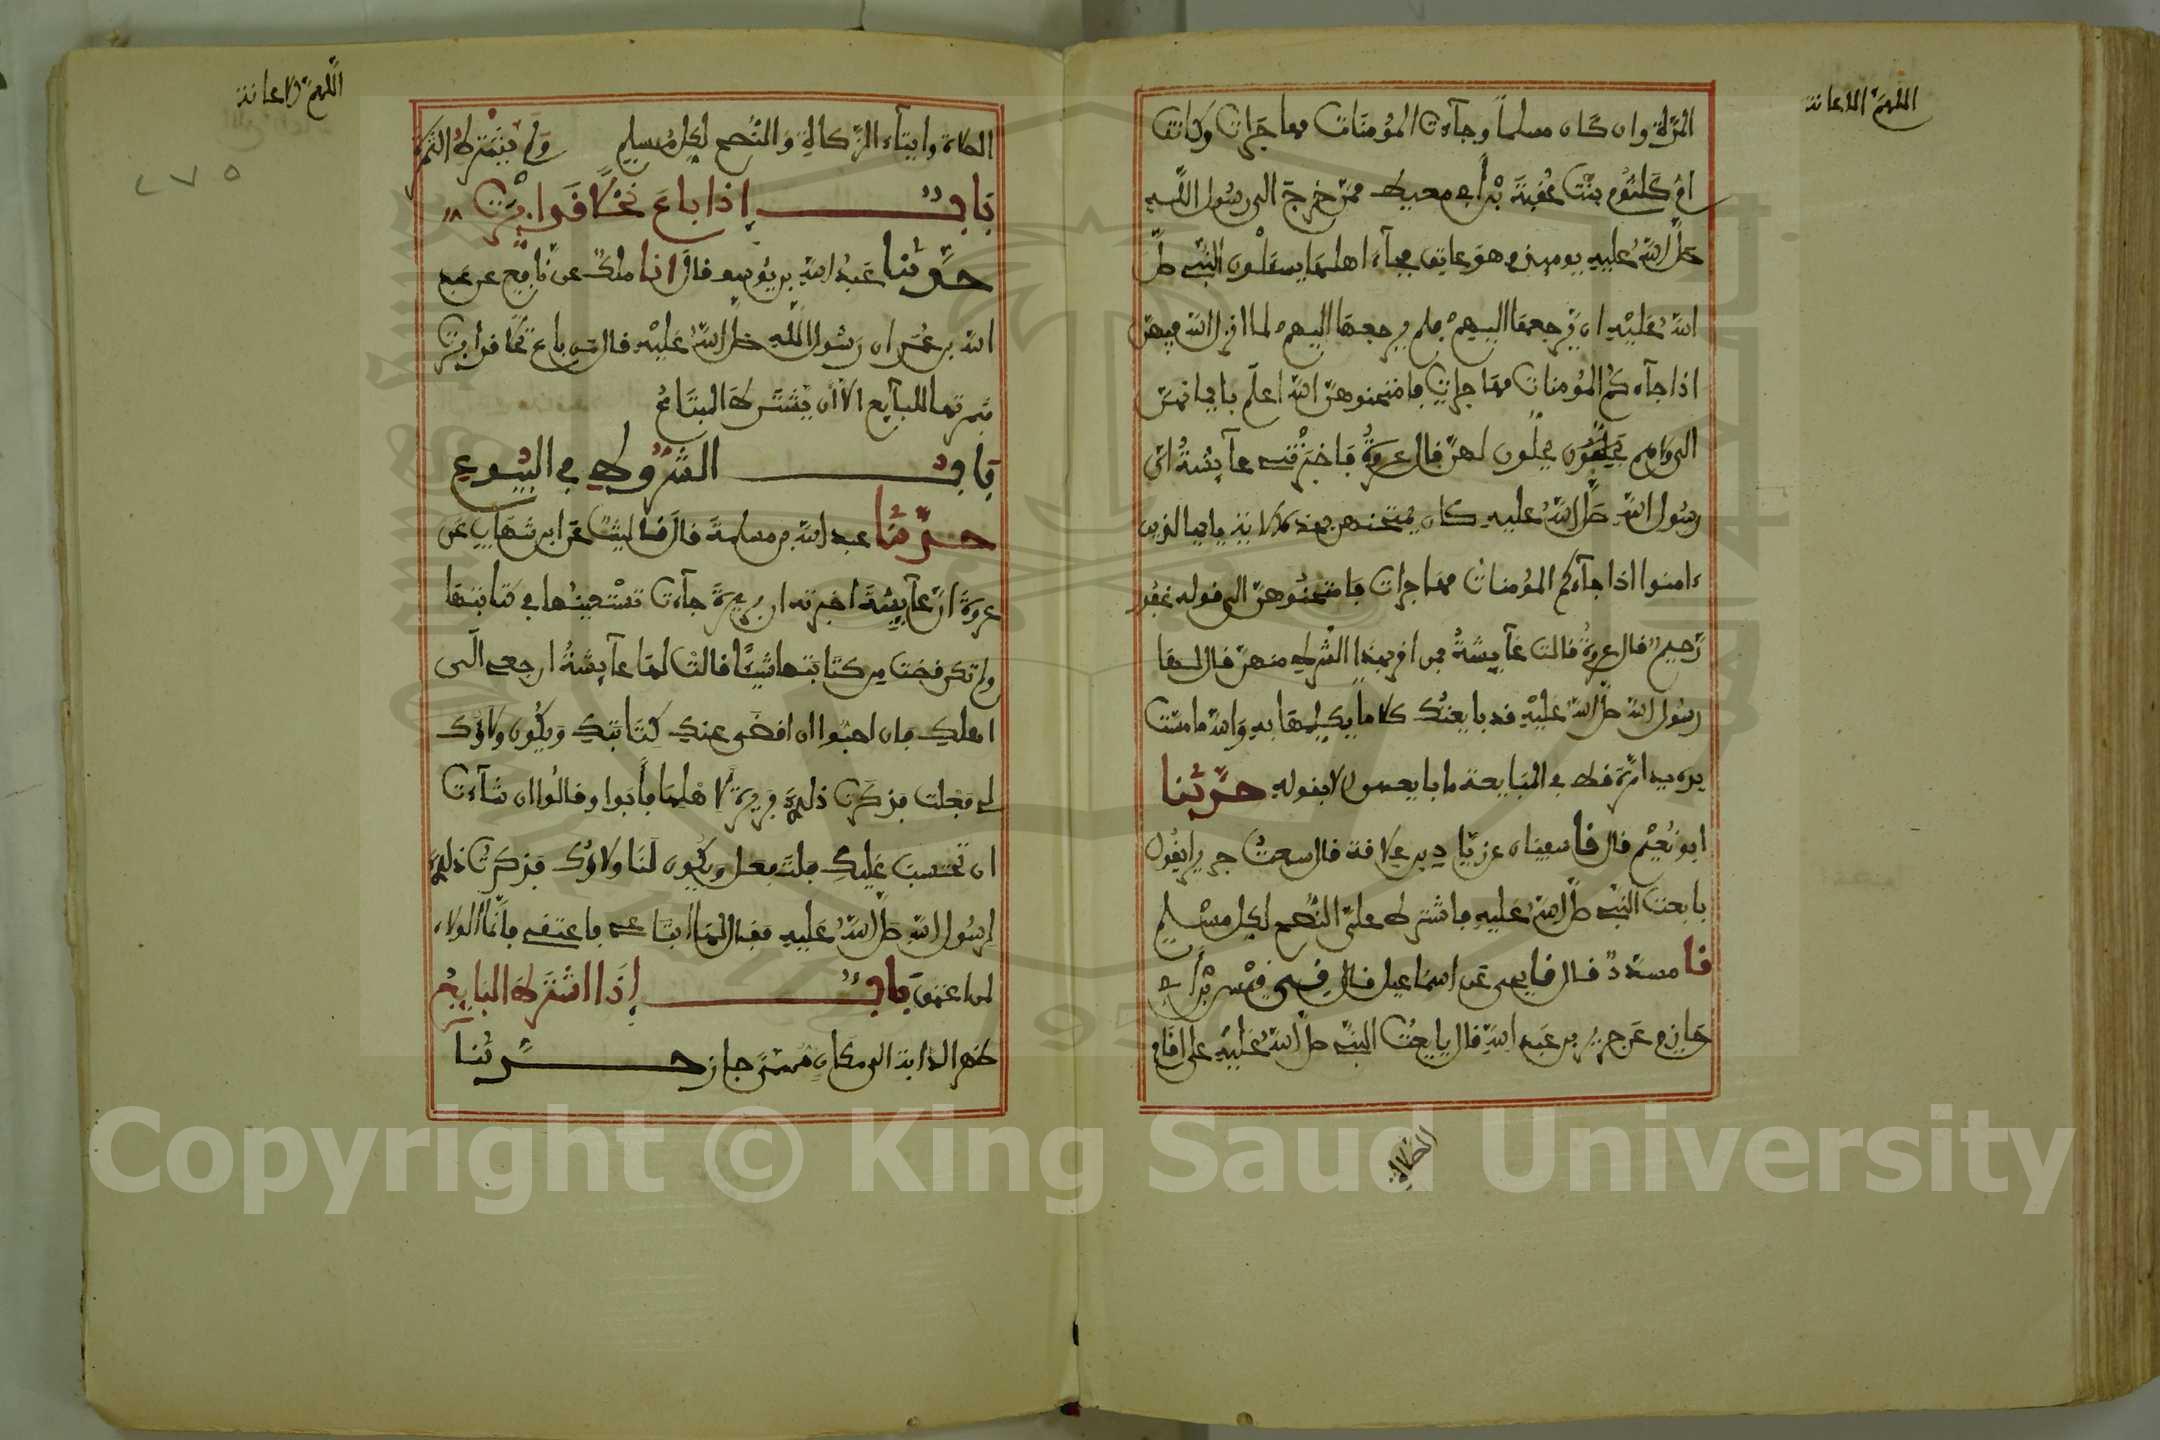 اللهم الاعانة
المدة وان كان مسلما وجآءت المؤمنات مهاجرات وكانت
ام كلثوم بنت عقبة بن ابي معيط ممن خرج الى رسول الله
صلى الله عليه يومئذ وهي عاتق فجآء اهلها يسئلون النبي صلى
الله عليه ان يرجعها اليهم فلم يرجعها اليهم لما انزل الله فيهن
اذا جآءكم المؤمنات مهاجرات فامتحنوهن الله اعلم بايمانهن
الى ولاهم يحلون لهن قال عروة فاخبرتني عآيشة ان
رسول الله صلى الله عليه كان يمتحنهن بهذه الاية يايها الذين
ءامنوا اذا جآءكم المؤمنات مهاجرات فامتحنوهن الى قوله غفور
رحيم قال عروة قالت عآيشة فمن اقر بهذا الشرط منهن قال لها
رسول الله صلى الله عليه قد بايعتك كلاما يكلمها به والله ما مست
يده يد امرأة قط في المبايعة ما بايعهن الا بقوله حدثنا
ابو نعيم قال نا سفيان عن زياد بن علاقة قال سمعت جريرا يقول
بايعت النبي صلى الله عليه فاشترط علي النصح لكل مسلم
نا مسدد قال نا يحيى عن اسماعيل قال ني قيس بن ابي
حازم عن جرير بن عبد الله قال بايعت النبي صلى الله عليه على اقام
الصلاة
اللهم الاعانة
٢٧٥
الصلاة وايتآء الزكاة والنصح لكل مسلم ولم يشترط الثمرة
باب إذا باع نخلا قد ابرت
حدثنا عبد الله بن يوسف قال انا ملك عن نافع عن عبد
الله بن عمر ان رسول الله صلى الله عليه قال من باع نخلا قد ابرت
فثمرتها للبآيع الا ان يشترط المبتاع
باب الشروط في البيوع
حدثنا عبد الله بن مسلمة قال نا ليث عن ابن شهاب عن
عروة ان عآيشة اخبرته ان بريرة جآءت تستعينها في كتابتها
ولم تكن قضت من كتابتها شيئا قالت لها عآيشة ارجعي الى
اهلك فان احبوا ان اقضي عنك كتابتك ويكون ولاؤك
لي فعلت فذكرت ذلك بريرة لاهلها فأبوا وقالوا ان شآءت
ان تحتسب عليك فلتفعل ويكون لنا ولاؤك فذكرت ذلك
لرسول الله صلى الله عليه فقال لها ابتاعي فاعتقي فإنما الولاء
لمن اعتق باب إذا اشترط البايع
ظهر الدابة الى مكان مسمى جاز حدثنا
Copyright © King Saud University